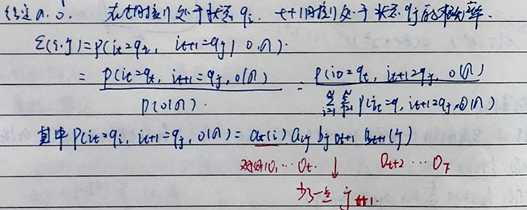 给定λ, O. 在t时刻处于状态 qi, t+1时刻处于状态 qj 的概率.
ξ(i,j)=P(it=qi, it+1=qj | O,λ).
= P(it=qi, it+1=qj, O|λ) / P(O|λ) = P(it=qi, it+1=qj, O|λ) / Σ Σ P(it=qi, it+1=qj, O|λ)
其中 P(it=qi, it+1=qj, O|λ) = αt(i) aij bj ot+1 βt+1(j)
O1, … Ot. ↓ Ot+2 … OT
少一点 j t+1.